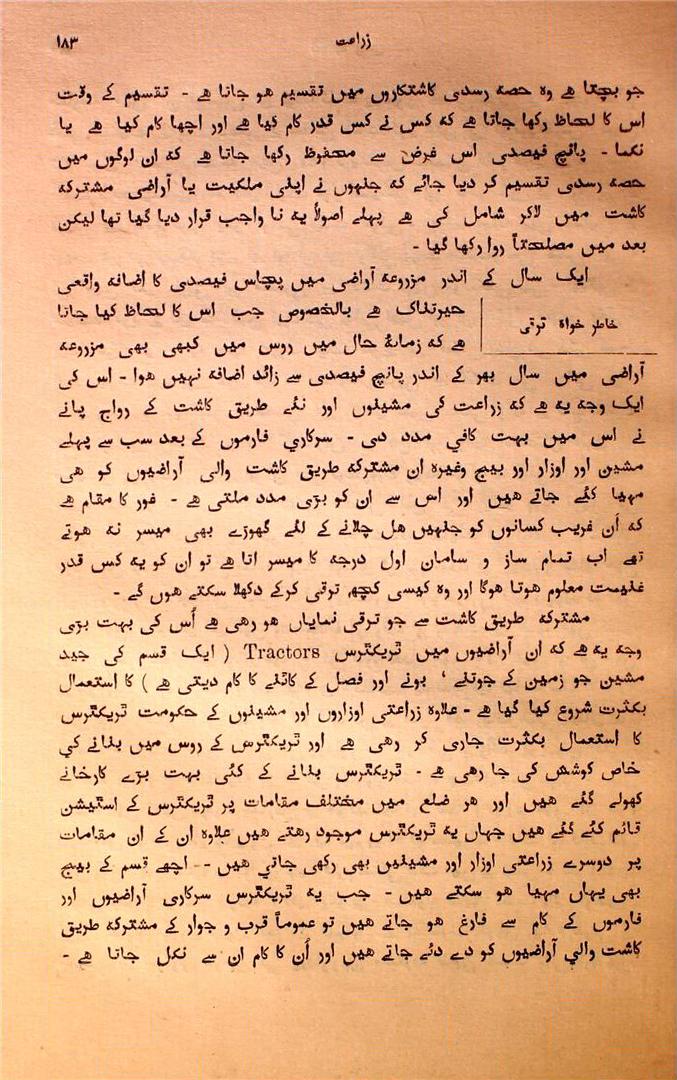 زراعت ۱۸۳
جو بچتا ہے وہ حصہ رسدی کاشتکاروں میں تقسیم ہو جاتا ہے - تقسیم کے وقت
اس کا لحاظ رکھا جاتا ہے کہ کس نے کس قدر کام کیا ہے اور اچھا کام کیا ہے یا
نکما - پانچ فیصدی اس غرض سے محفوظ رکھا جاتا ہے کہ ان لوگوں میں
حصہ رسدی تقسیم کر دیا جائے کہ جنہوں نے اپنی ملکیت یا آراضی مشترکہ
کاشت میں لاکر شامل کی ہے پہلے اصولاً یہ نا واجب قرار دیا گیا تھا لیکن
بعد میں مصلحتاً روا رکھا گیا -
ایک سال کے اندر مزروعہ آراضی میں پچاس فیصدی کا اضافہ واقعی
خاطر خواہ ترقی
حیرتناک ہے بالخصوص جب اس کا لحاظ کیا جاتا
ہے کہ زمانۂ حال میں روس میں کبھی بھی مزروعہ
آراضی میں سال بھر کے اندر پانچ فیصدی سے زائد اضافہ نہیں ہوا - اس کی
ایک وجہ یہ ہے کہ زراعت کی مشینوں اور نئے طریق کاشت کے رواج پانے
نے اس میں بہت کافی مدد دی - سرکاری فارموں کے بعد سب سے پہلے
مشین اور اوزار اور بیج وغیرہ ان مشترکہ طریق کاشت والی آراضیوں کو ہی
مہیا کئے جاتے ہیں اور اس سے ان کو بڑی مدد ملتی ہے - غور کا مقام ہے
کہ اُن غریب کسانوں کو جنہیں ہل چلانے کے لئے گھوڑے بھی میسر نہ ہوتے
تھے اب تمام ساز و سامان اول درجہ کا میسر اتا ہے تو ان کو یہ کس قدر
غنیمت معلوم ہوتا ہوگا اور وہ کیسی کچھ ترقی کرکے دکھلا سکتے ہوں گے -
مشترکہ طریق کاشت سے جو ترقی نمایاں ہو رہی ہے اُس کی بہت بڑی
وجہ یہ ہے کہ ان آراضیوں میں ٹریکٹرس Tractors ( ایک قسم کی جید
مشین جو زمین کے جوتنے ' بونے اور فصل کے کاٹنے کا کام دیتی ہے ) کا استعمال
بکثرت شروع کیا گیا ہے - علاوہ زراعتی اوزاروں اور مشینوں کے حکومت ٹریکٹرس
کا استعمال بکثرت جاری کر رہی ہے اور ٹریکٹرس کے روس میں بنانے کی
خاص کوشش کی جا رہی ہے - ٹریکٹرس بنانے کے کئی بہت بڑے کارخانے
کھولے گئے ہیں اور ہر ضلع میں مختلف مقامات پر ٹریکٹرس کے اسٹیشن
قائم کئے گئے ہیں جہاں یہ ٹریکٹرس موجود رہتے ہیں علاوہ ان کے ان مقامات
پر دوسرے زراعتی اوزار اور مشینیں بھی رکھی جاتی ہیں - اچھے قسم کے بیج
بھی یہاں مہیا ہو سکتے ہیں - جب یہ ٹریکٹرس سرکاری آراضیوں اور
فارموں کے کام سے فارغ ہو جاتے ہیں تو عموماً قرب و جوار کے مشترکہ طریق
کاشت والی آراضیوں کو دے دئے جاتے ہیں اور اُن کا کام ان سے نکل جاتا ہے -